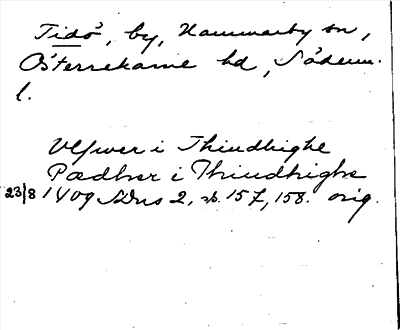 Tidö, by, Hammarby sn,
Österrekarne hd, Söderm.
l.
Vlfwer i Thiudhighe
Pædhær i Thiudhighe
23/8 1409 SDns 2, s. 157, 158. orig.